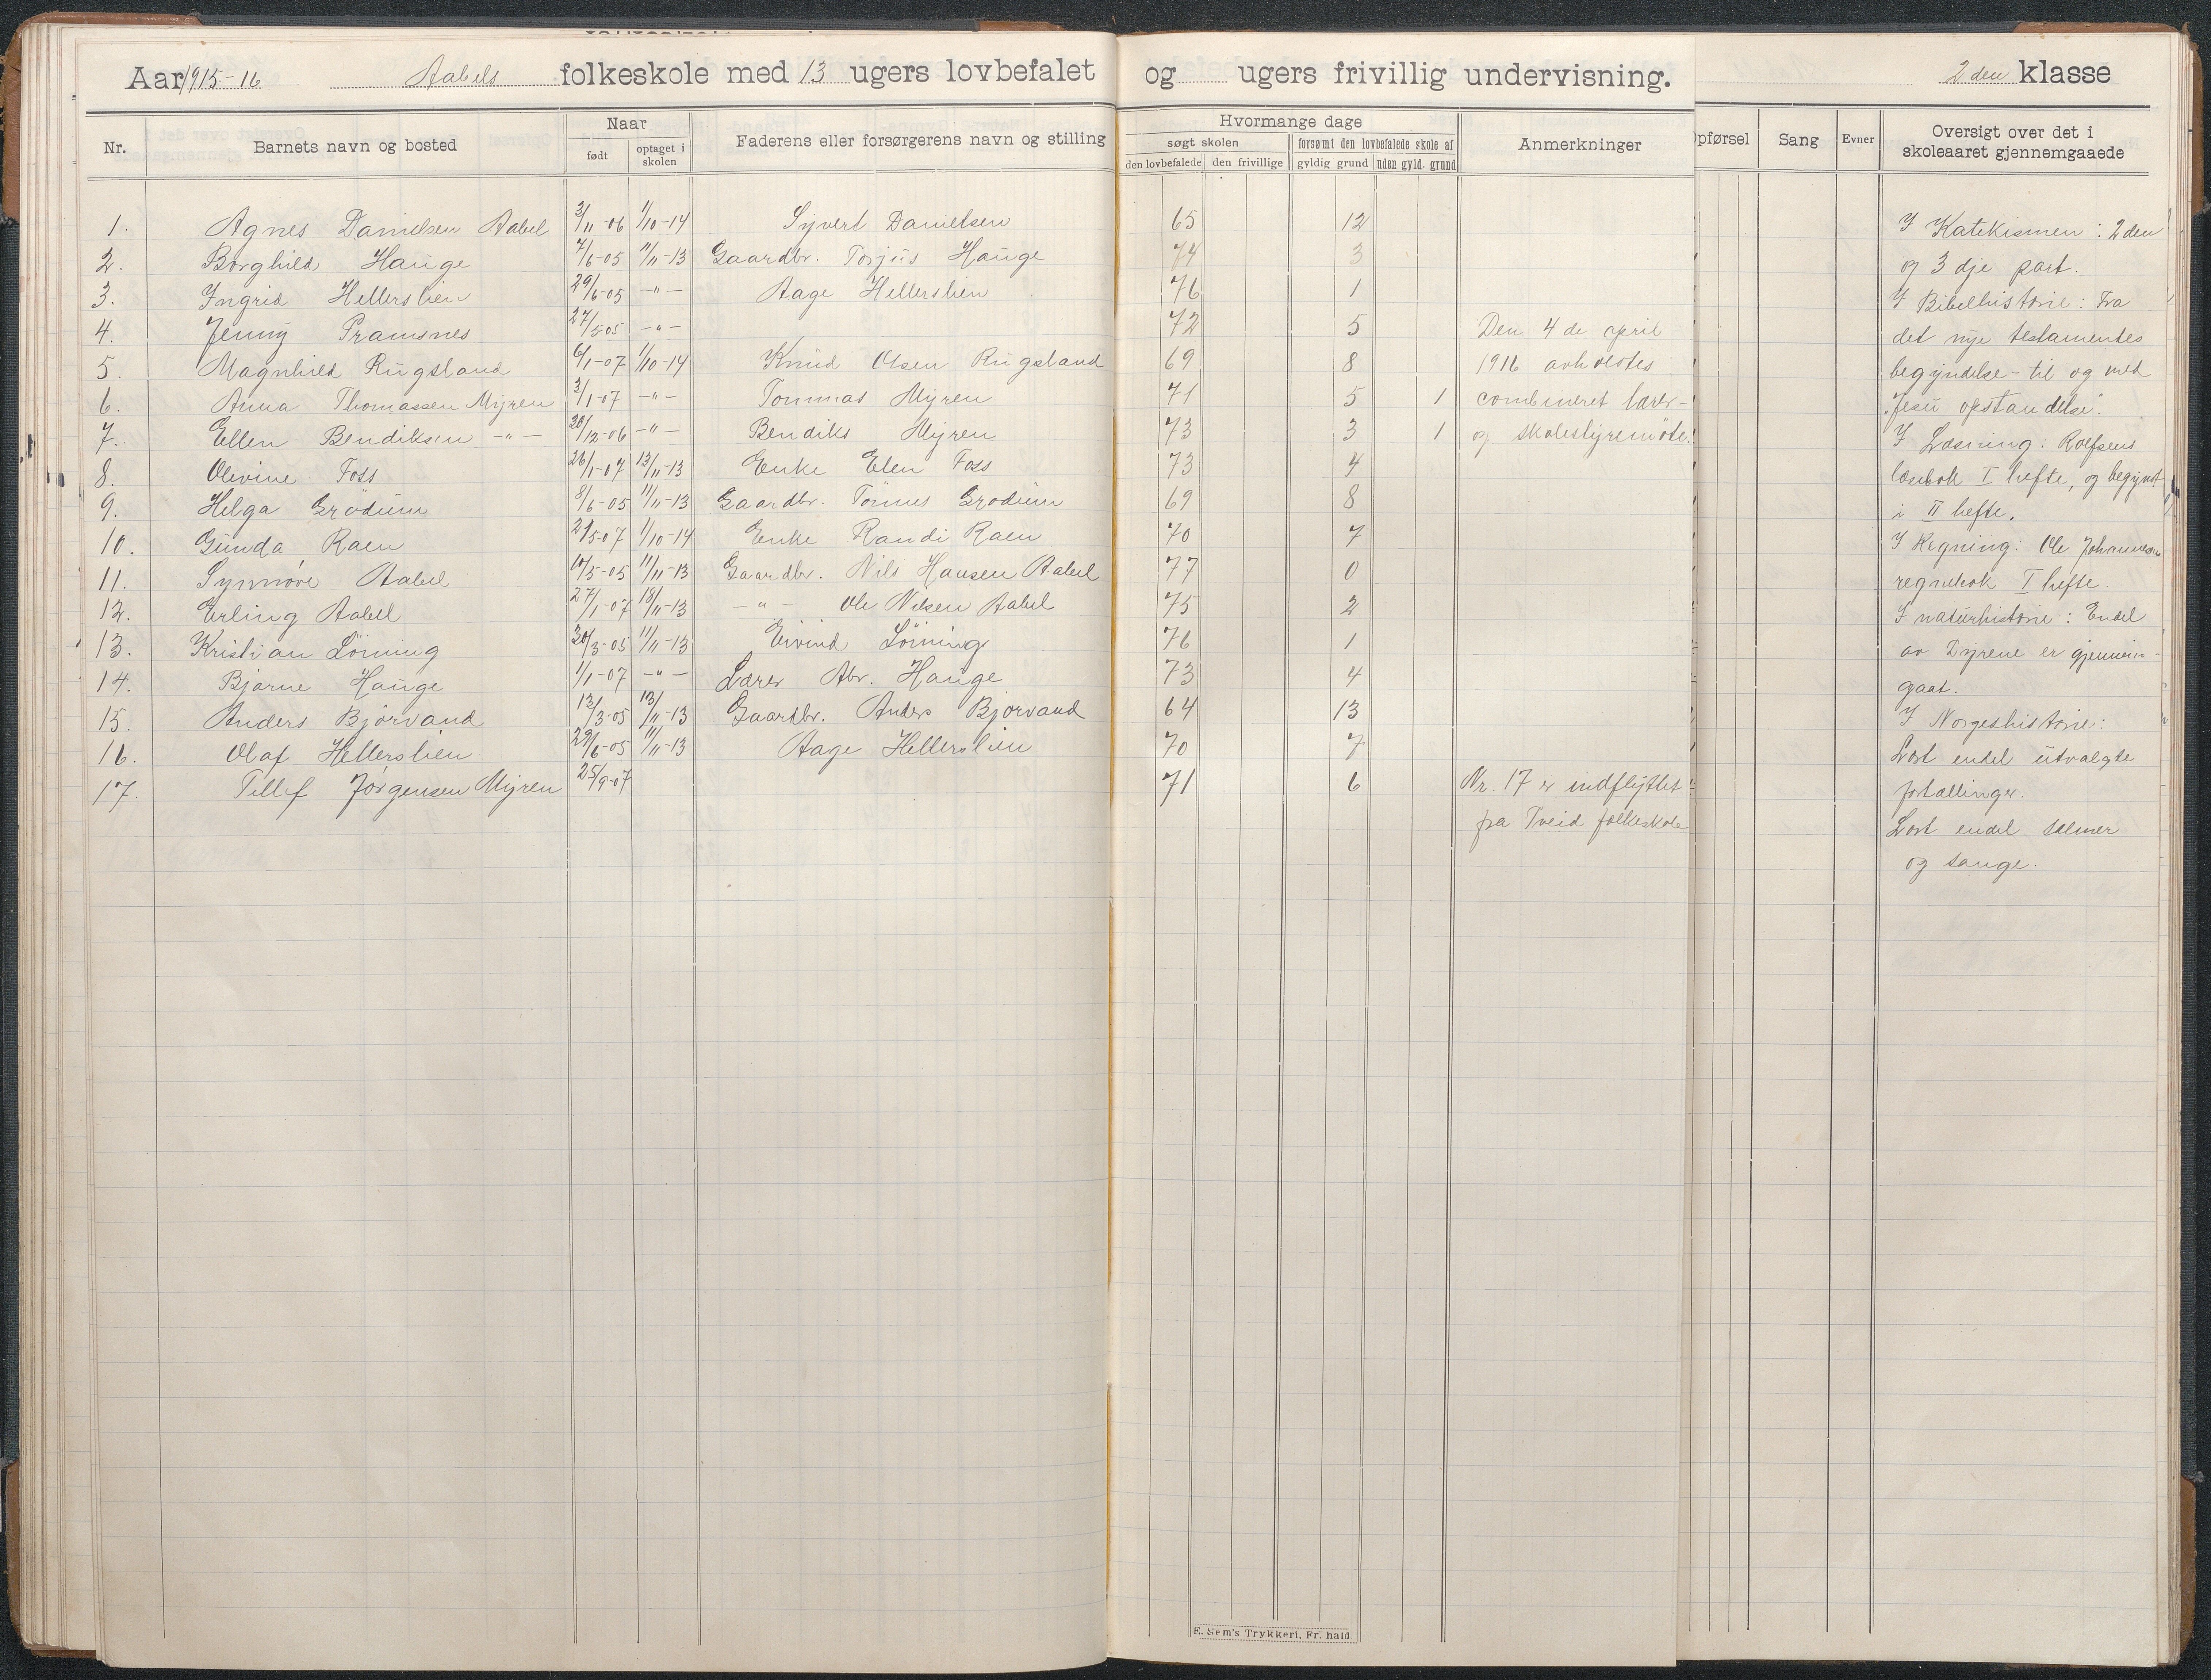 Aar 1915-16 Aabels folkeskole med 13 ugers lovbefalet og ugers frivillig undervisning. 2den klasse
Nr. Barnets navn og bosted Naar født optaget i skolen Faderens eller forsørgerens navn og stilling
Hvormange dage Anmerkninger Opførsel Sang Evner Oversigt over det i skoleaaret gjennemgaaede
søgt skolen forsømt den lovbefalede skole af
den lovbefalede den frivillige gyldig grund uden gyld. grund
1. Agnes Danielsen Aabel 3/11-06 1/10-14 Syvert Danielsen 65 12
2. Borghild Hauge 7/6-05 11/11-13 Gaardbr. Torjus Hauge 74 3
3. Ingrid Hellerslien 29/6-05 -"- Aage Hellerslien 76 1
4. Jenny Pramsnes 27/5-05 -"- 72 5 Den 4de april
5. Magnhild Rugsland 6/1-07 1/10-14 Knud Olsen Rugsland 69 8 1916 avholdtes
6. Anna Thomassen Myren 3/1-07 -"- Tommas Myren 71 5 1 combineret lærer-
7. Ellen Bendiksen -"- 20/12-06 -"- Bendiks Myren 73 3 1 og skolestyremöte.
8. Olevine Foss 26/1-07 13/11-13 Enke Elen Foss 73 4
9. Helga Grödum 8/6-05 11/11-13 Gaardbr. Tönnes Grödum 69 8
10. Gunda Raen 21/5-07 1/10-14 Enke Randi Raen 70 7
11. Synnöve Aabel 10/5-05 11/11-13 Gaardbr. Nils Hansen Aabel 77 0
12. Erling Aabel 27/1-07 18/11-13 -"- Ole Nilsen Aabel 75 2
13. Kristian Löining 30/3-05 11/11-13 Eivind Löining 76 1
14. Bjarne Hauge 1/1-07 -"- Lærer Abr. Hauge 73 4
15. Anders Bjorvand 13/3-05 13/11-13 Gaardbr. Anders Bjorvand 64 13
16. Olaf Hellerslien 29/6-05 11/11-13 Aage Hellerslien 70 7
17. Tellef Jörgensen Myren 25/9-07 71 6 Nr. 17 er indflyttet
fra Tveid folkeskole
I Katekismen: 2den
og 3dje part.
I Bibelhistorie: Fra
det nye testamentes
begyndelse - til og med
"Jesu opstandelse".
I Læsning: Rolfsens
læsebok I hefte, og begynt
i II hefte.
I Regning: Ole Johannesen
regnebok I hefte.
I naturhistorie: Endel
av Dyrene er gjennem-
gaat.
I Norgeshistorie:
Læst endel utvalgte
fortællinger.
Lært endel salmer
og sange.
E. Sem's Trykkeri, Fr. hald.